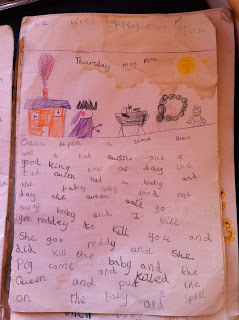 he lived happyly ever after.
Thursday May
Once upon a time there
was a bad queen and a
good king now one day the
bad queen had a baby and
the baby was good one
day the queen said go
away baby and I will
get reddey to kill you and
She got reddy and She
did kill the baby and the
Pig came and killed the
Queen and put a spell
on the baby and